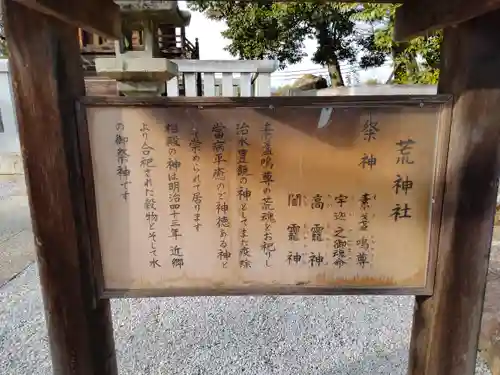 荒神社
祭神 素盞鳴尊
宇迦之御魂命
高龗神
闇龗神
素盞鳴尊の荒魂をお祀りし
治水豊穀の神としてまた疫除
當病平癒のご神徳ある神と
して崇められて居ります
相殿の神は明治四十三年 近郷
より合祀された穀物とそして水
の御祭神です